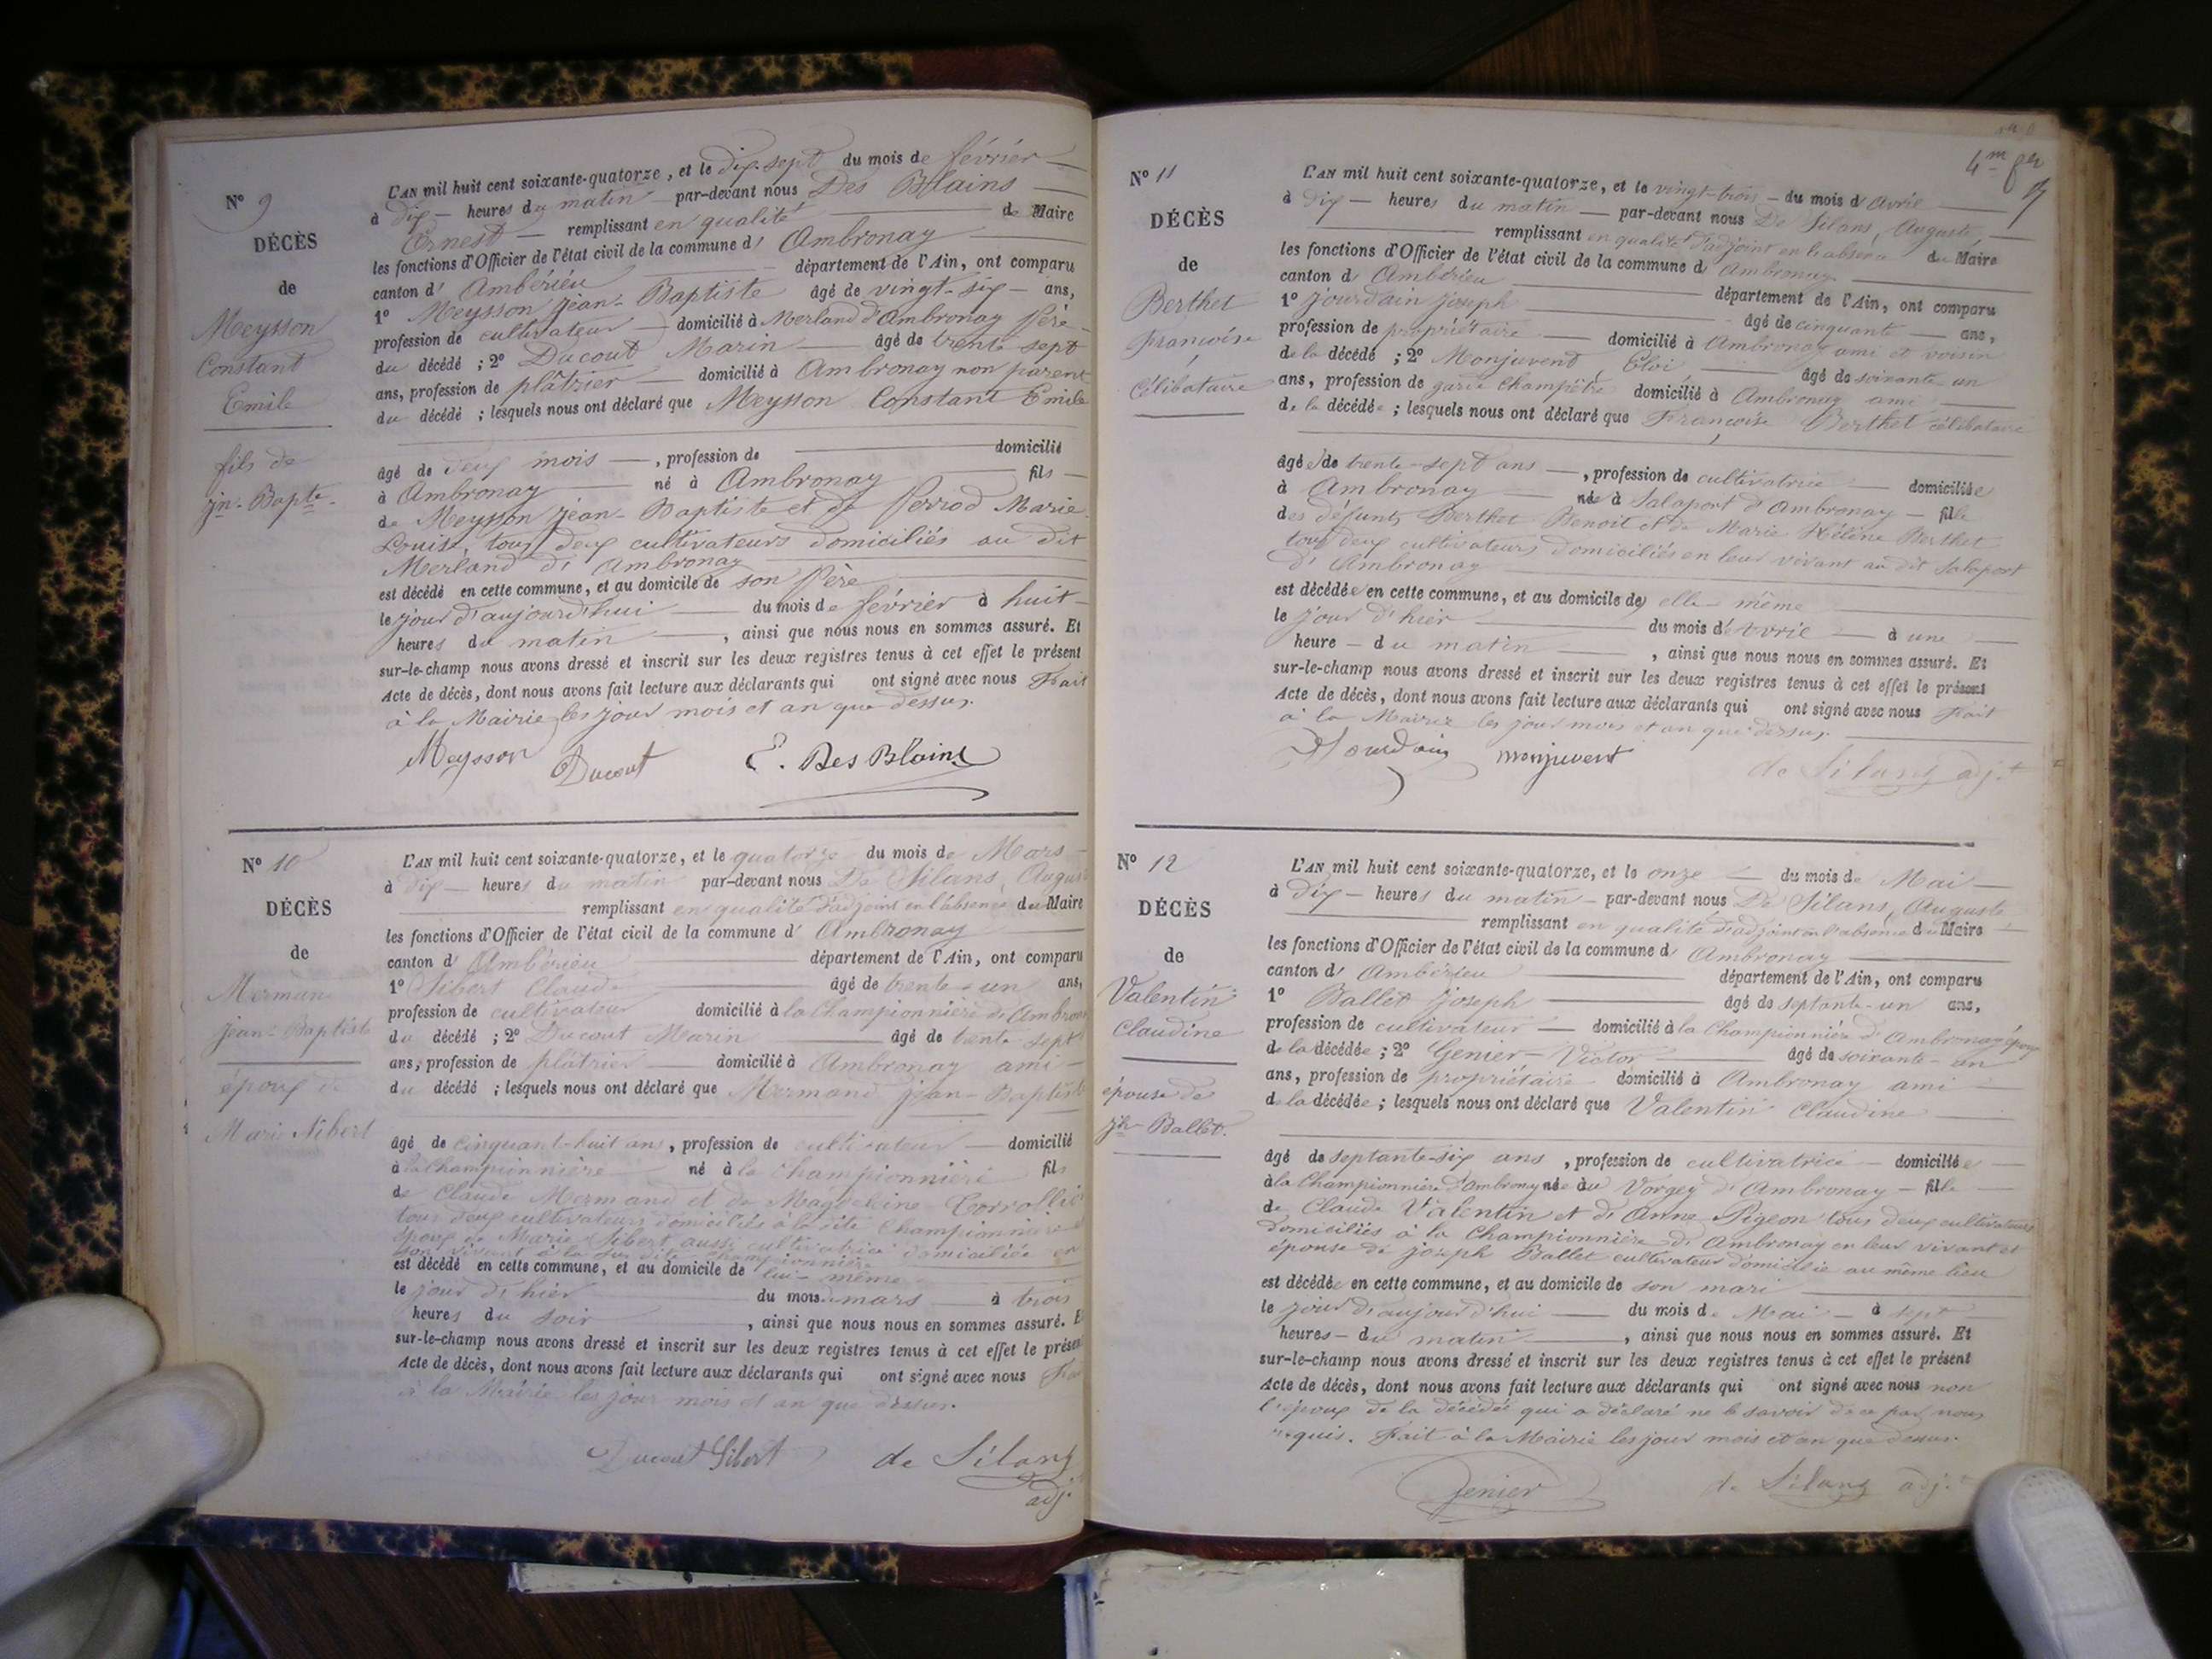 N° 9
DÉCÈS
de
Meysson
Constant
Emile
fils de
Jn- Bapte-
L'AN mil huit cent soixante-quatorze, et le dix-sept du mois de février
à dix heures du matin par-devant nous Des Blains
Ernest remplissant en qualité de Maire
les fonctions d'Officier de l'état civil de la commune d' Ambronay
canton d' Ambérieu département de l'Ain, ont comparu
1° Meysson Jean-Baptiste âgé de vingt-six ans,
profession de cultivateur domicilié à Merland d'Ambronay père
du décédé ; 2° Ducout Marin âgé de trente sept
ans, profession de plâtrier domicilié à Ambronay non parent
du décédé ; lesquels nous ont déclaré que Meysson Constant Emile
âgé de deux mois , profession de domicilié
à Ambronay né à Ambronay fils
de Meysson Jean-Baptiste et de Perrod Marie
Louise, tous deux cultivateurs domiciliés au dit
Merland d' Ambronay
est décédé en cette commune, et au domicile de son père
le jour d'aujourd'hui du mois de février à huit
heures du matin , ainsi que nous nous en sommes assuré. Et
sur-le-champ nous avons dressé et inscrit sur les deux registres tenus à cet effet le présent
Acte de décès, dont nous avons fait lecture aux déclarants qui ont signé avec nous Fait
à la Mairie les jour mois et an que dessus.
Meysson Ducout E. Des Blains
N° 10
DÉCÈS
de
Mermand
Jean-Baptiste
époux de
Marie Sibert
L'AN mil huit cent soixante-quatorze, et le quatorze du mois de Mars
à dix heures du matin par-devant nous De Silans, Auguste
remplissant en qualité d'adjoint en l'absence du Maire
les fonctions d'Officier de l'état civil de la commune d' Ambronay
canton d' Ambérieu département de l'Ain, ont comparu
1° Sibert Claude âgé de trente-un ans,
profession de cultivateur domicilié à la Championnière d'Ambronay
du décédé ; 2° Ducout Marin âgé de trente sept
ans, profession de plâtrier domicilié à Ambronay ami
du décédé ; lesquels nous ont déclaré que Mermand Jean-Baptiste
âgé de cinquante-huit ans, profession de cultivateur domicilié
à la Championnière né à la Championnière fils
de Claude Mermand et de Magdeleine
tous deux cultivateurs domiciliés à la dite Championnière
époux de Marie Sibert aussi cultivatrice domiciliée en
son vivant à la sus dite Championnière
est décédé en cette commune, et au domicile de lui-même
le jour d'hier du mois de mars à trois
heures du soir , ainsi que nous nous en sommes assuré. E
sur-le-champ nous avons dressé et inscrit sur les deux registres tenus à cet effet le présen
Acte de décès, dont nous avons fait lecture aux déclarants qui ont signé avec nous Fait
à la Mairie les jour mois et an que dessus.
Ducout Sibert de Silans
adj.
4me fer
N° 11
DÉCÈS
de
Berthet
Françoise
célibataire
L'AN mil huit cent soixante-quatorze, et le vingt-trois du mois d' Avril
à dix heures du matin par-devant nous De Silans, Auguste
remplissant en qualité d'adjoint en l'absence du Maire
les fonctions d'Officier de l'état civil de la commune d' Ambronay
canton d' Ambérieu département de l'Ain, ont comparu
1° Jourdain Joseph âgé de cinquante ans,
profession de propriétaire domicilié à Ambronay ami et voisin
de la décédé ; 2° Monjuvent, Eloi âgé de soixante-un
ans, profession de garde champêtre domicilié à Ambronay ami
de la décédée ; lesquels nous ont déclaré que Françoise Berthet célibataire
âgée de trente-sept ans , profession de cultivatrice domiciliée
à Ambronay née à Salaport d'Ambronay fille
des défunts Berthet Benoit et de Marie Hélène Berthet
tous deux cultivateurs domiciliés en leur vivant au dit Salaport
d' Ambronay
est décédée en cette commune, et au domicile de elle-même
le jour d'hier du mois d' Avril à une
heure du matin , ainsi que nous nous en sommes assuré. Et
sur-le-champ nous avons dressé et inscrit sur les deux registres tenus à cet effet le présent
Acte de décès, dont nous avons fait lecture aux déclarants qui ont signé avec nous Fait
à la Mairie les jour mois et an que dessus.
Jourdain monjuvent
de Silans adjt
N° 12
DÉCÈS
de
Valentin
Claudine
épouse de
Jh- Ballet.
L'AN mil huit cent soixante-quatorze, et le onze du mois de Mai
à dix heures du matin par-devant nous De Silans, Auguste
remplissant en qualité d'adjoint en l'absence du Maire
les fonctions d'Officier de l'état civil de la commune d' Ambronay
canton d' Ambérieu département de l'Ain, ont comparu
1° Ballet Joseph âgé de septante-un ans,
profession de cultivateur domicilié à la Championnière d'Ambronay époux
de la décédée ; 2° Genier-Victor âgé de soixante-un
ans, profession de propriétaire domicilié à Ambronay ami
de la décédée ; lesquels nous ont déclaré que Valentin Claudine
âgé de septante-six ans , profession de cultivatrice domiciliée
à la Championnière d'Ambronay née au Vorgey d'Ambronay fille
de Claude Valentin et d' Anne Pigeon tous deux cultivateurs
domiciliés à la Championnière d' Ambronay en leur vivant et
épouse de Joseph Ballet cultivateur domicilié au même lieu
est décédée en cette commune, et au domicile de son mari
le jour d'aujourd'hui du mois de Mai à sept
heures du matin , ainsi que nous nous en sommes assuré. Et
sur-le-champ nous avons dressé et inscrit sur les deux registres tenus à cet effet le présent
Acte de décès, dont nous avons fait lecture aux déclarants qui ont signé avec nous non
l'époux de la décédée qui a déclaré ne le savoir de ce par nous
requis. Fait à la Mairie les jour mois et an que dessus.
Genier de Silans adjt